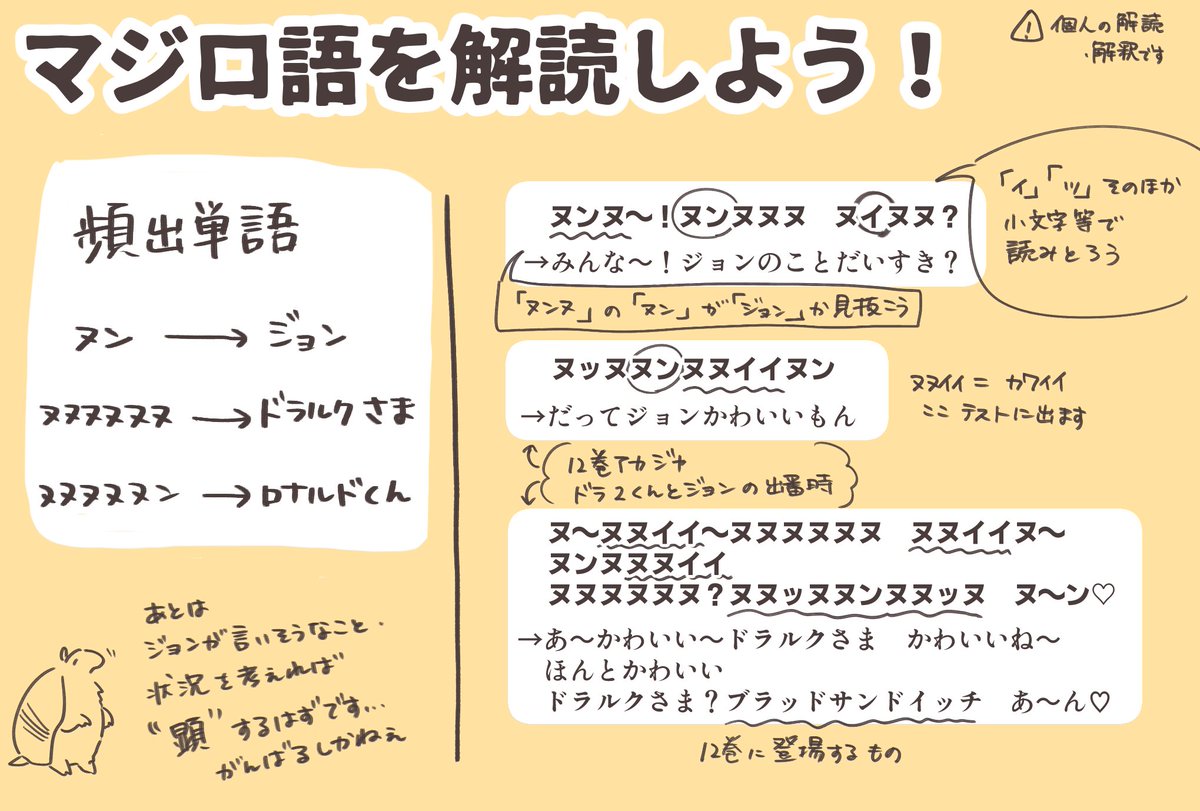 マジロ語を解読しよう！
⚠個人の解読
・解釈です
頻出単語
ヌン→ジョン
ヌヌヌヌヌヌ→ドラルクさま
ヌヌヌヌヌン→ロナルドくん
あとは
ジョンが言いそうなこと・
状況を考えれば
“顕”するはずです…
がんばるしかねぇ
ヌンヌ〜！ヌンヌヌヌ　ヌイヌヌ？
→みんな〜！ジョンのことだいすき？
「ヌンヌ」の「ヌン」が「ジョン」か見抜こう
「イ」「ッ」そのほか
小文字等で
読みとろう
ヌッヌヌンヌヌイイヌン
→だってジョンかわいいもん
ヌヌイイ＝カワイイ
ココテストに出ます
12巻アカジャ
ドラ2くんとジョンの出番時
ヌ〜ヌヌイイ〜ヌヌヌヌヌヌ　ヌヌイイヌ〜
ヌンヌヌヌイイ
ヌヌヌヌヌヌ？ヌヌッヌヌンヌヌッヌ　ヌ〜ン♡
→あ〜かわいい〜ドラルクさま　かわいいね〜
ほんとかわいい
ドラルクさま？ブラッドサンドイッチ　あ〜ん♡
12巻に登場するもの